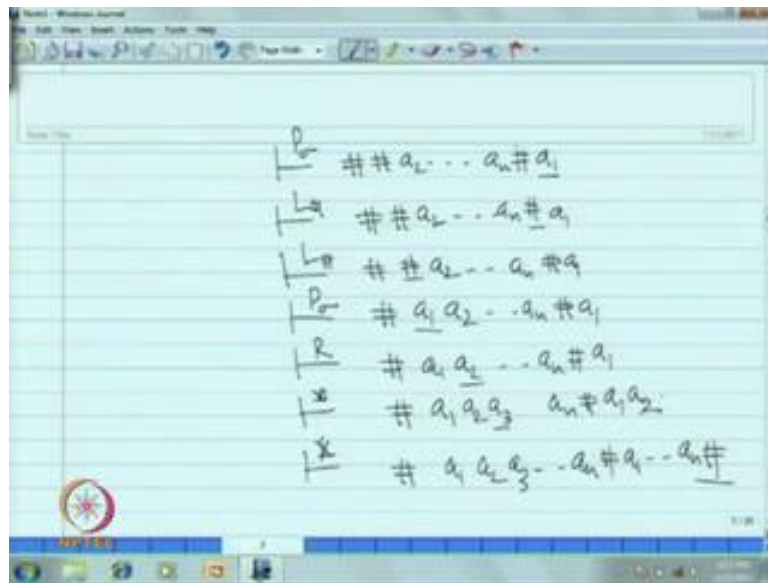 Note1 - Windows Journal
File Edit View Insert Actions Tools Help
Page Width
Note Title
⊢^{Pσ} # # a₂ - - - aₙ # a₁
⊢^{L#} # # a₂ - - aₙ # a₁
⊢^{L#} # # a₂ - - aₙ # a₁
⊢^{Pσ} # a₁ a₂ - - aₙ # a₁
⊢^{R} # a₁ a₂ - - aₙ # a₁
⊢^{*} # a₁ a₂ a₃ aₙ # a₁ a₂
⊢^{*} # a₁ a₂ a₃ - - aₙ # a₁ - - aₙ #
NPTEL